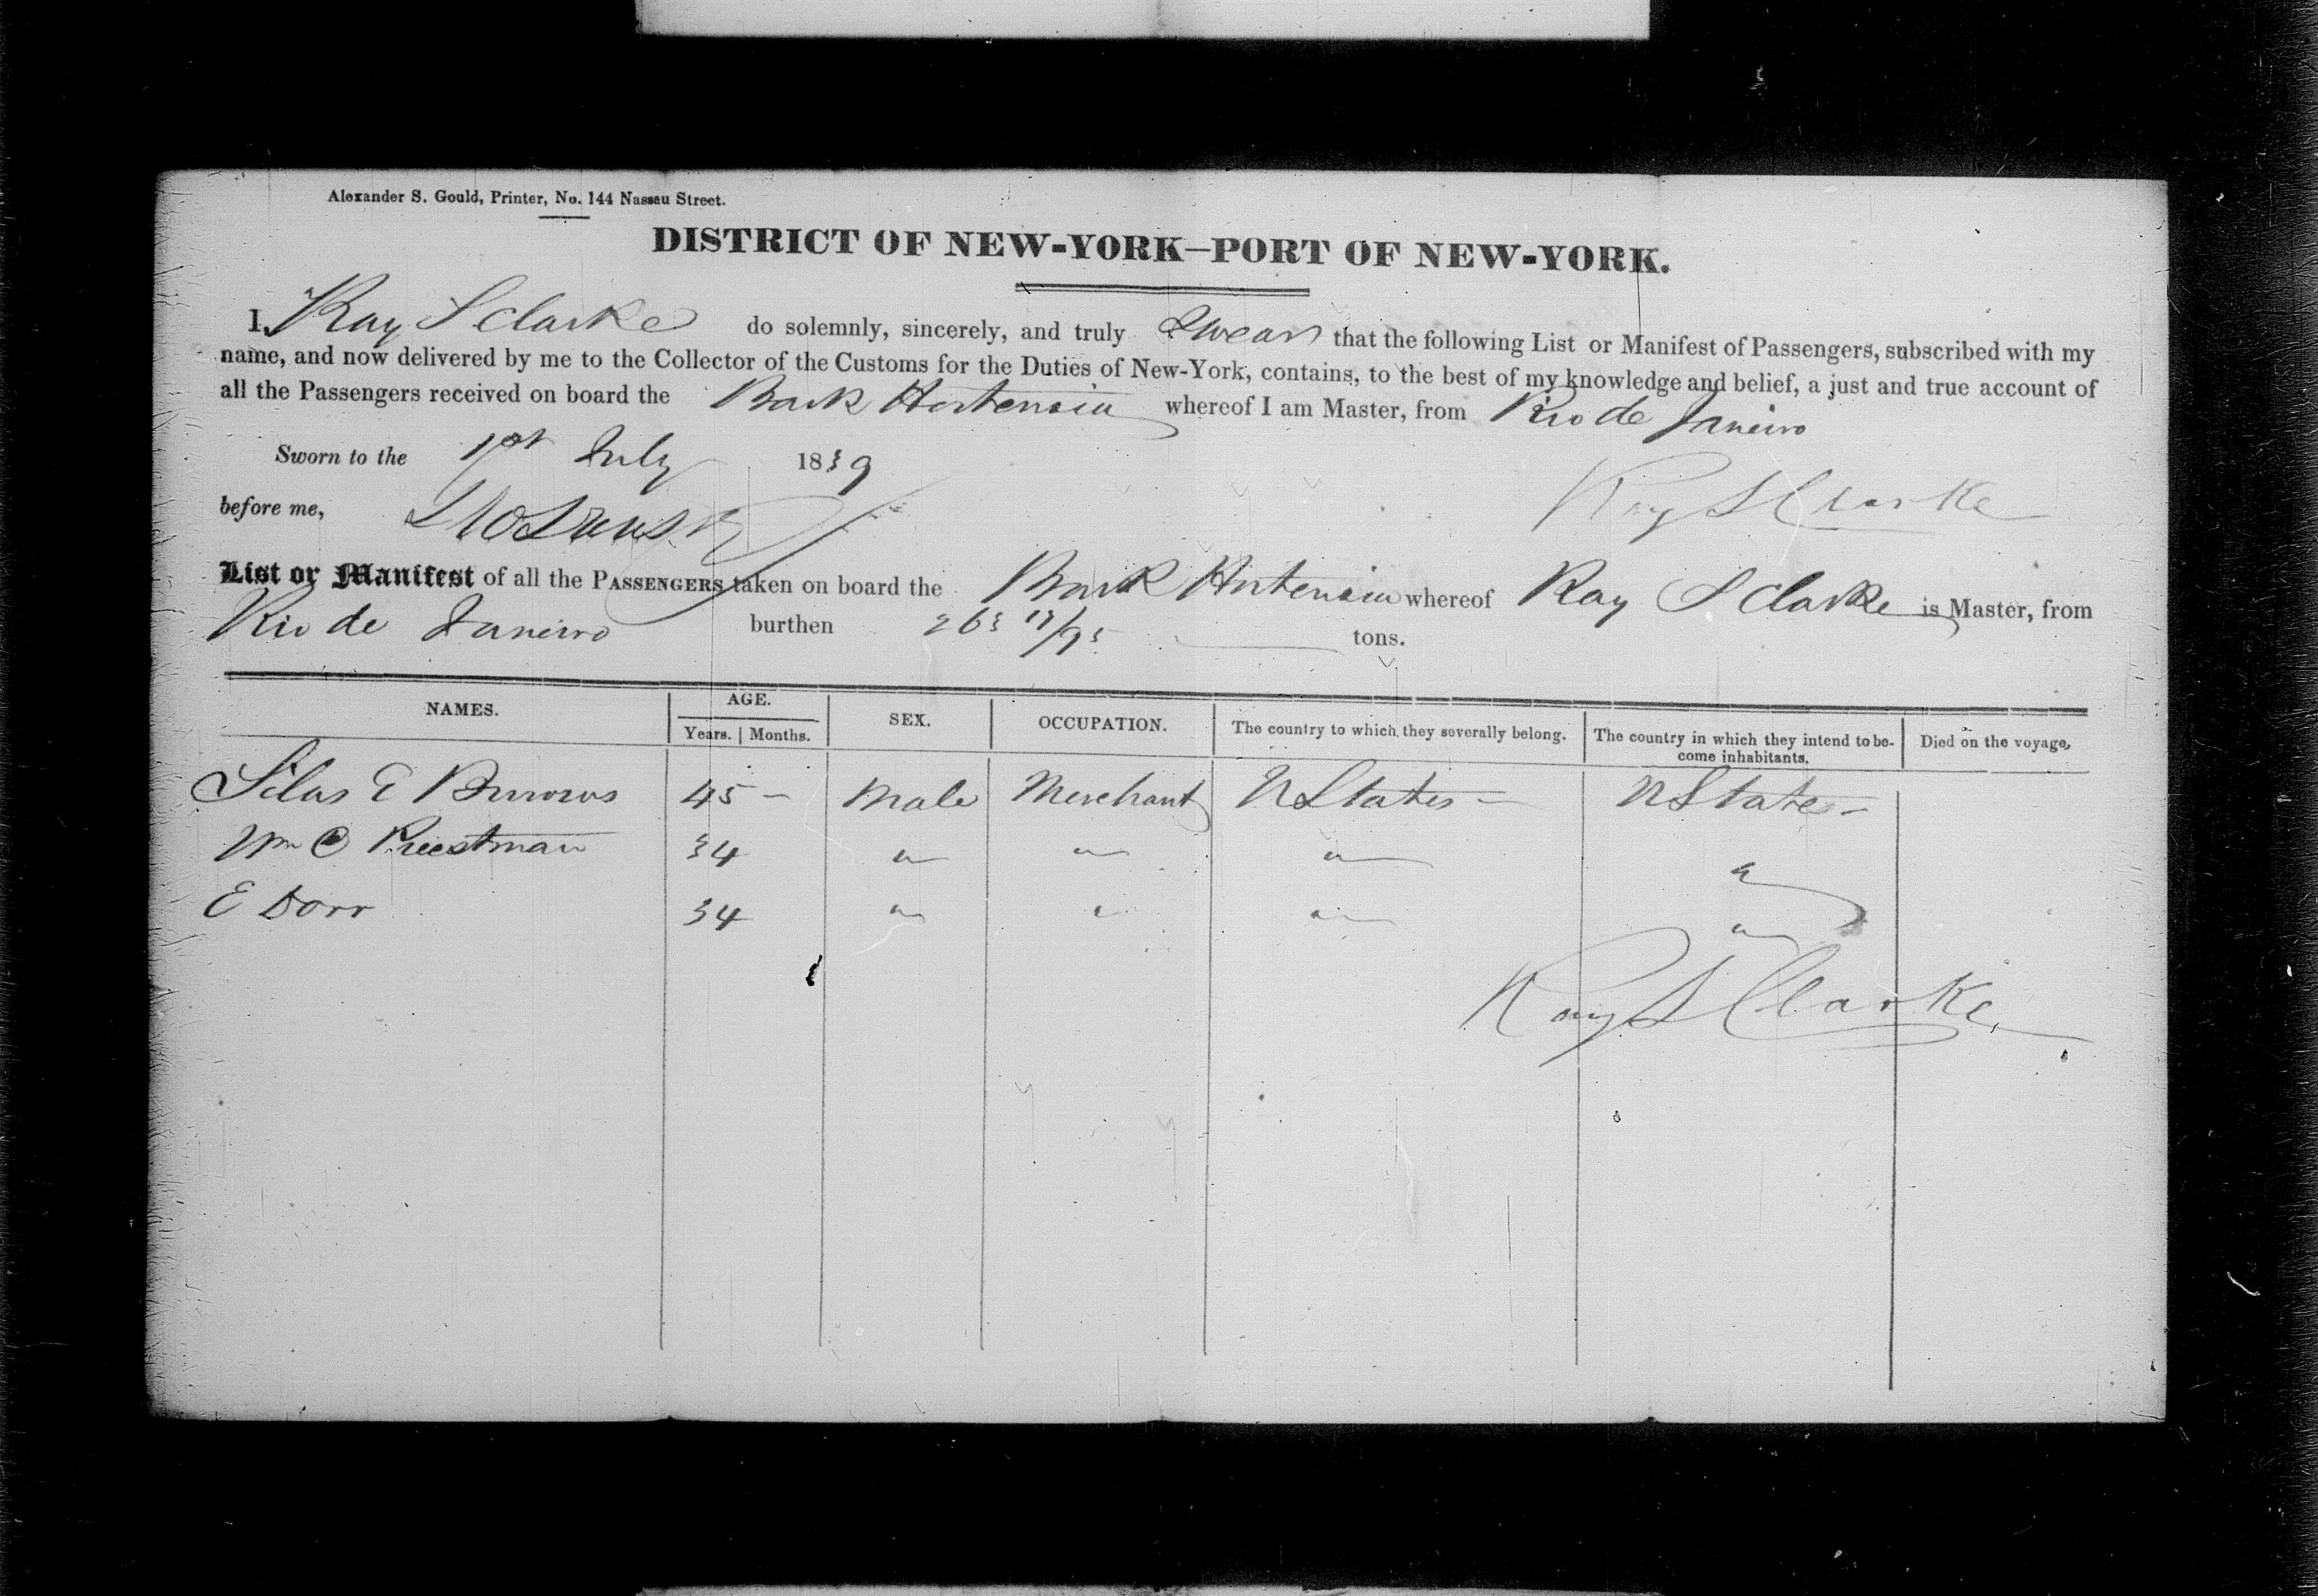 Alexander S. Gould, Printer, No. 144 Nassau Street.
DISTRICT OF NEW-YORK—PORT OF NEW-YORK.
I, Ray S Clarke do solemnly, sincerely, and truly Swear that the following List or Manifest of Passengers, subscribed with my
name, and now delivered by me to the Collector of the Customs for the Duties of New-York, contains, to the best of my knowledge and belief, a just and true account of
all the Passengers received on board the Bark Hortensia whereof I am Master, from Rio de Janeiro
Sworn to the 1st July 1839
Ray S Clarke
before me,
List or Manifest of all the PASSENGERS taken on board the Bark Hortensia whereof Ray S Clarke is Master, from
Rio de Janeiro burthen 263 /95 tons.
NAMES. AGE. SEX. OCCUPATION. The country to which they severally belong. The country in which they intend to be- Died on the voyage.
Years. | Months. come inhabitants.
Silas E Burrows 45 — Male Merchant U States — U States —
Wm C Priestman 34 " " " "
E Dorr 34 " " " "
Ray S Clarke